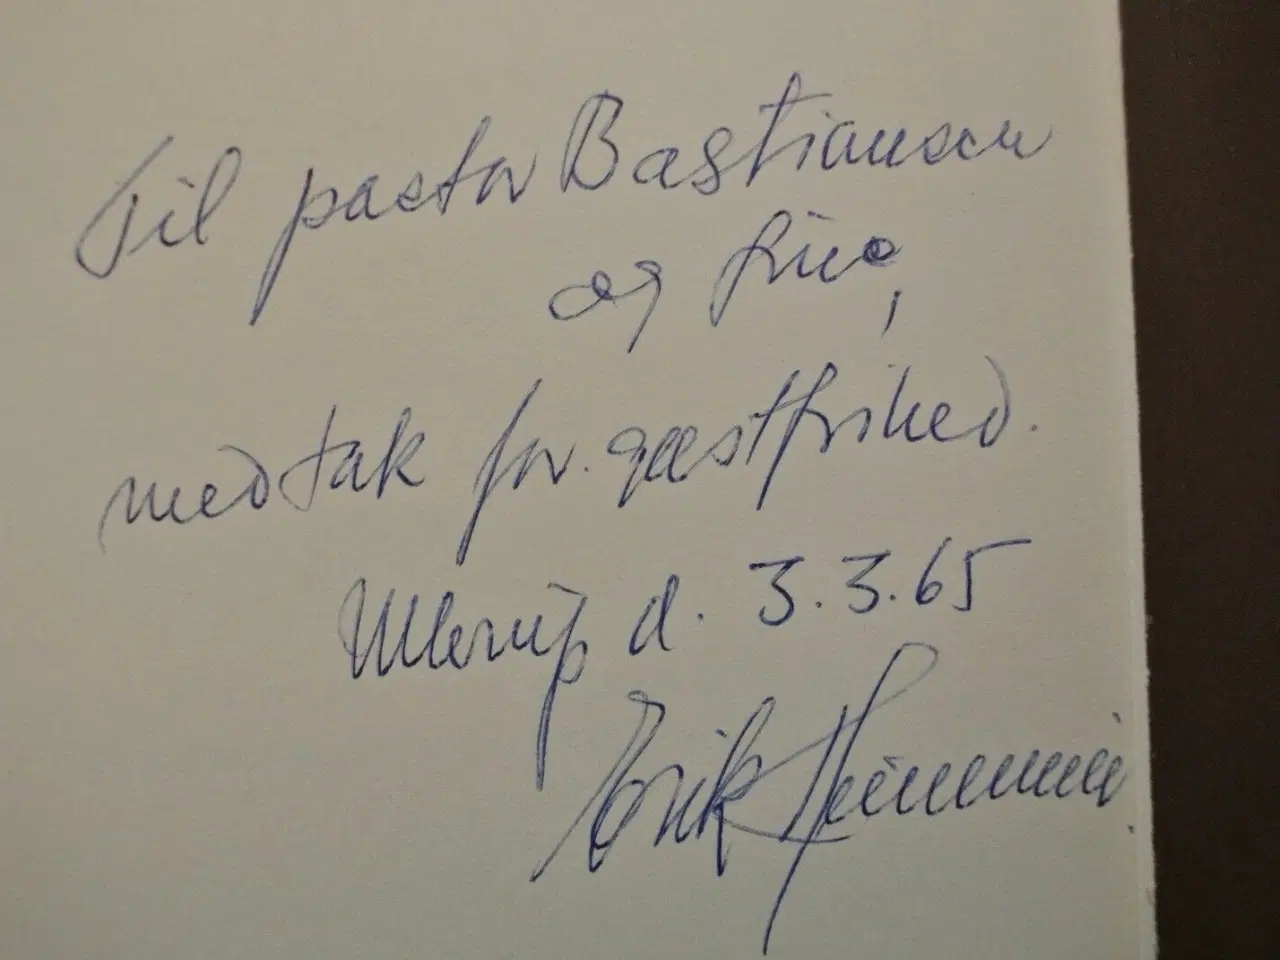 Til pastor Bastiansen
og frue,
med tak for gæstfrihed.
Ullerup d. 3.3.65
Erik